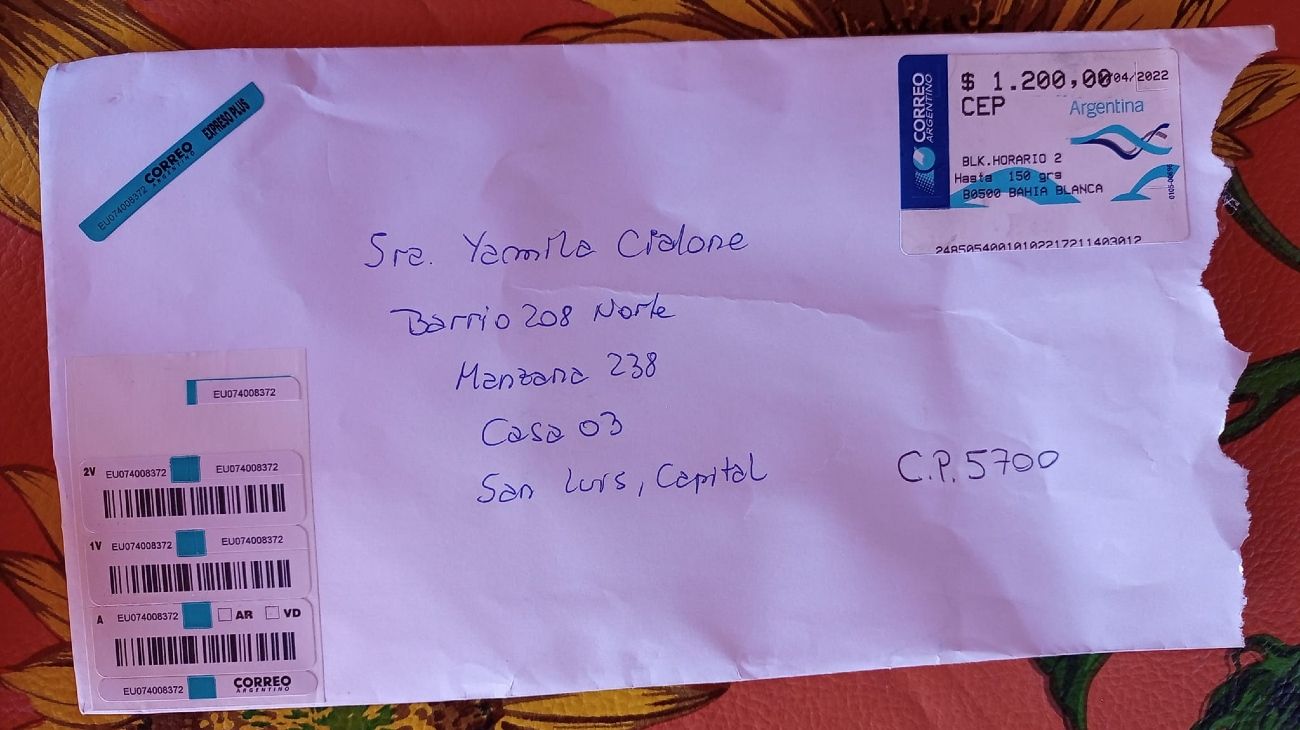 EXPRESO PLUS
CORREO
ARGENTINO
EU074008372
CORREO
ARGENTINO
$ 1.200,00 04/2022
CEP
Argentina
BLK.HORARIO 2
Hasta 150 grs
B0500 BAHIA BLANCA
Sra. Yamila Cialone
Barrio 208 Norte
Manzana 238
Casa 03
San Luis, Capital
C.P. 5700
EU074008372
2V EU074008372 EU074008372
1V EU074008372 EU074008372
A EU074008372 AR VD
EU074008372 CORREO
ARGENTINO